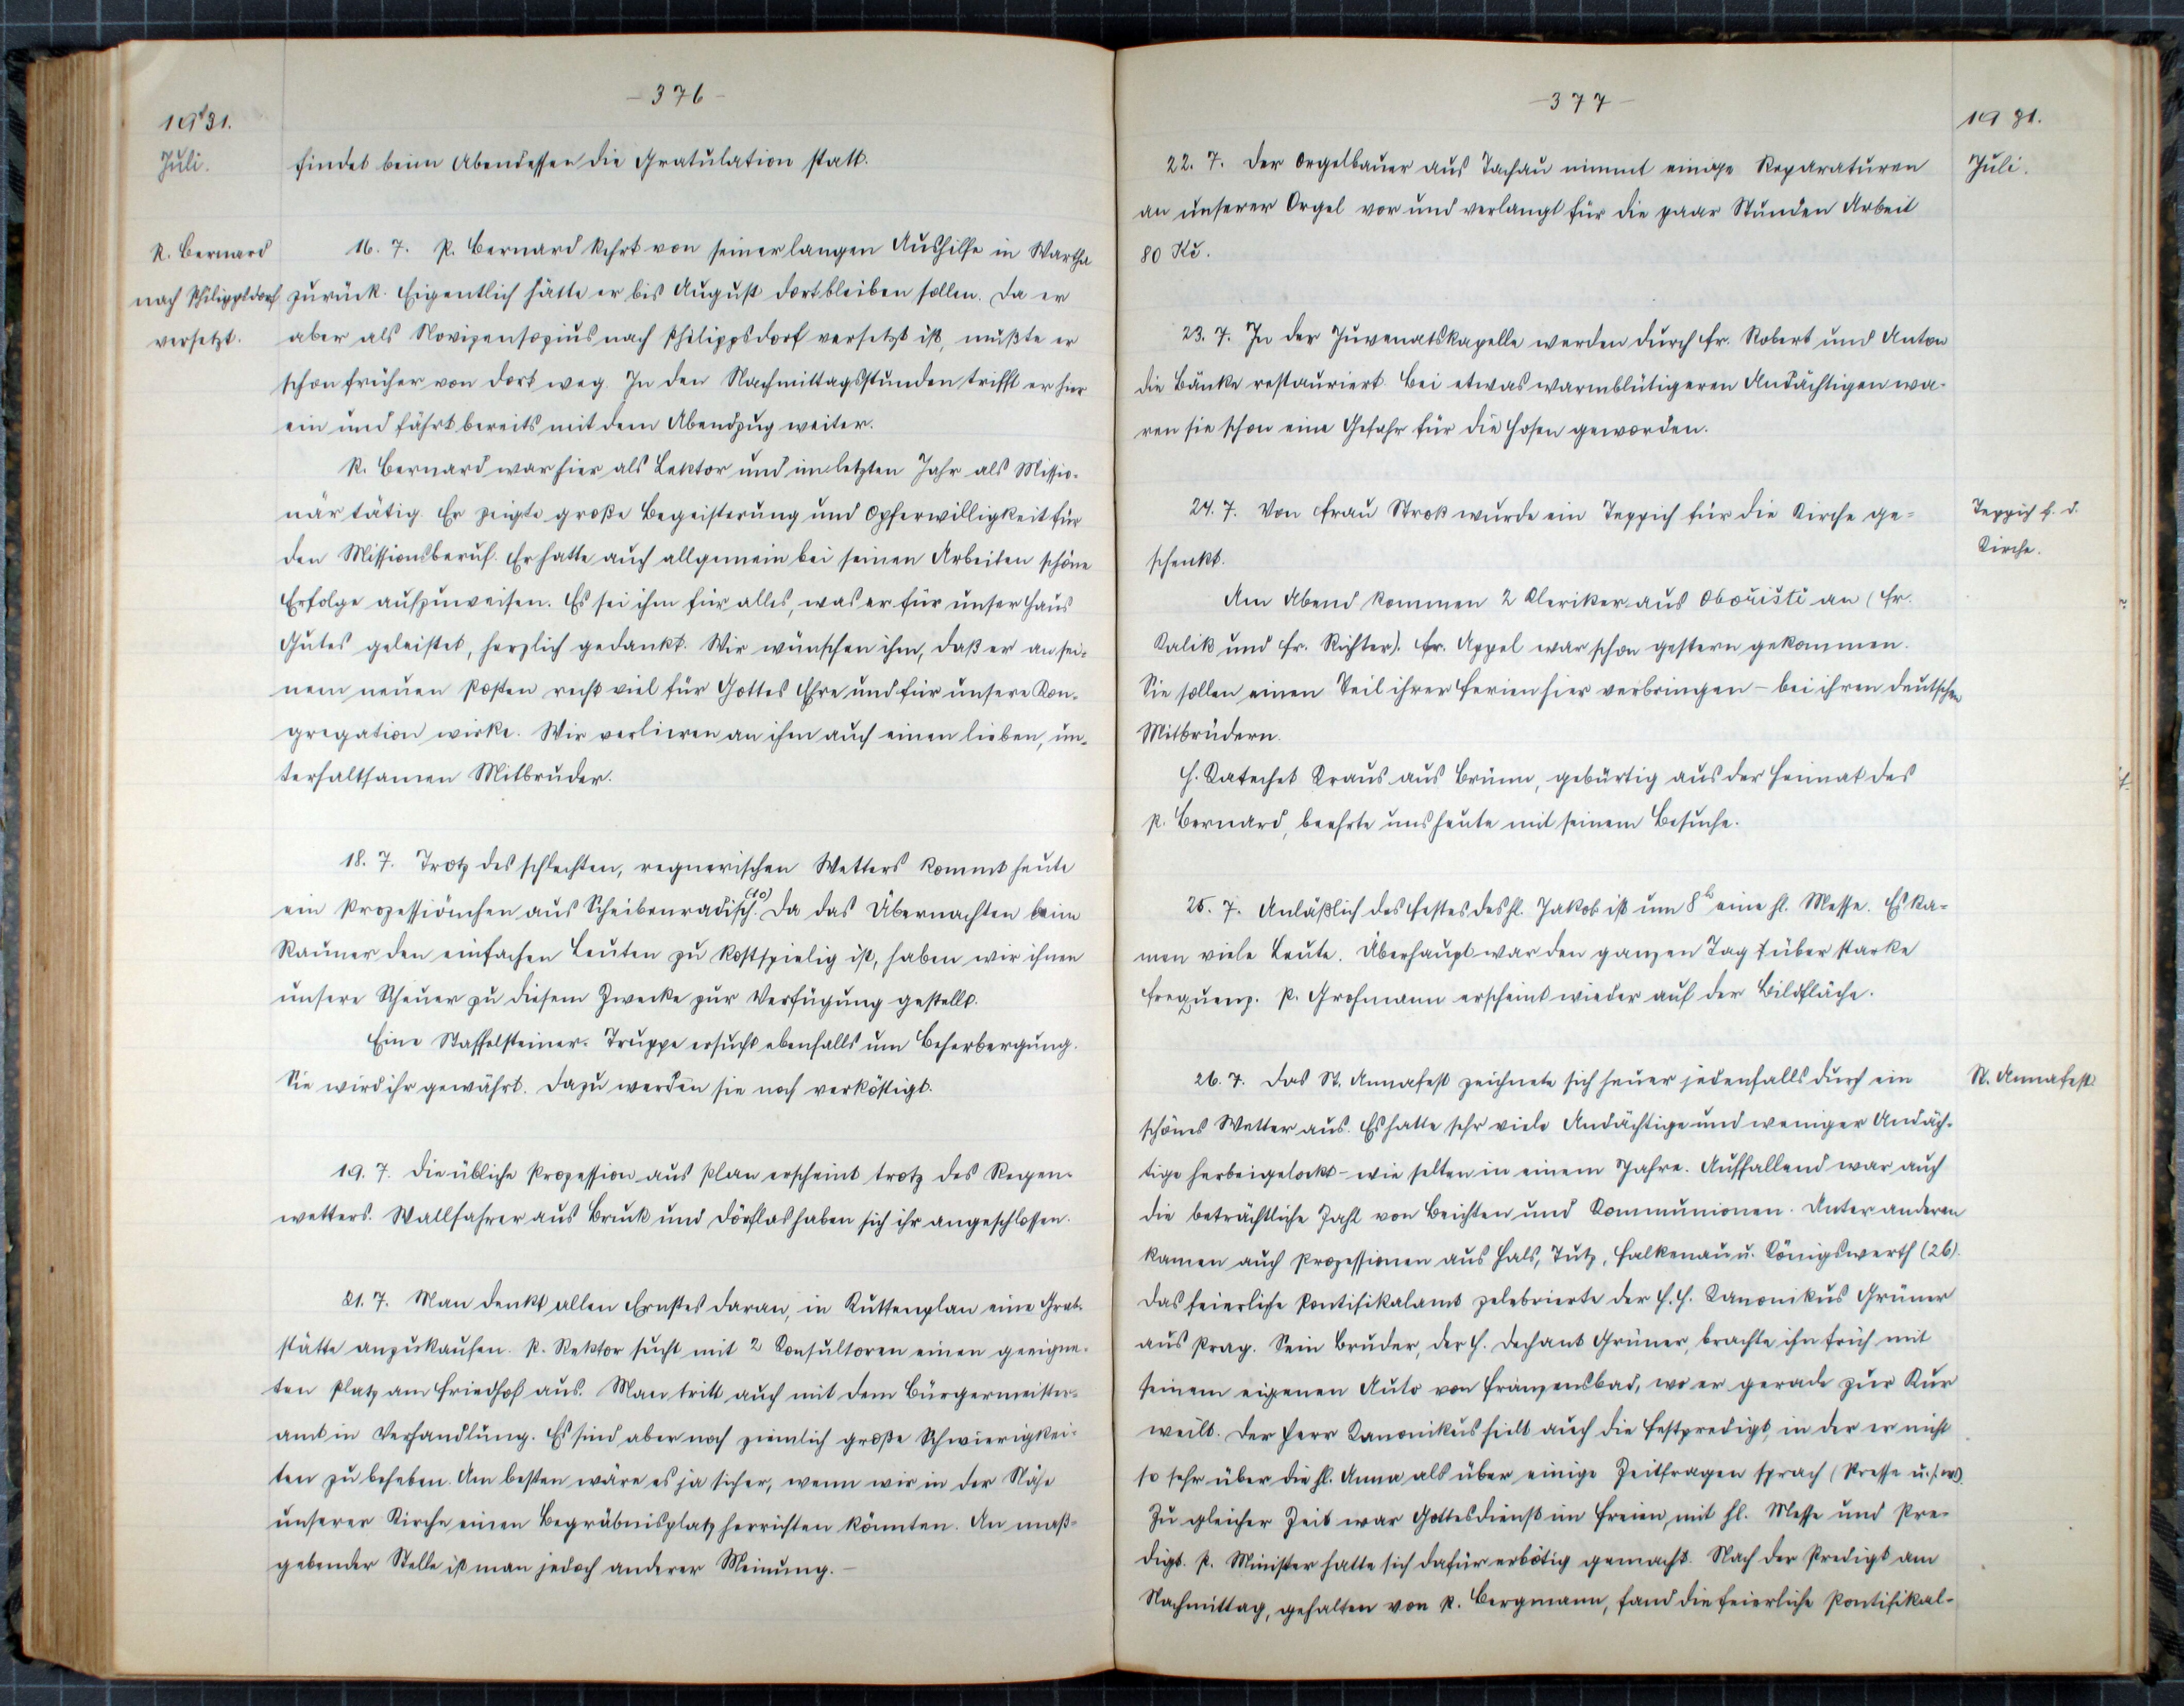 - 376 -
1931.
Juli.
findet beim Abendessen die Gratulation statt.
P. Bernard
nach Philippsdorf
versetzt.
16. 7. P. Bernard kehrt von seiner langen Aushilfe in Wartha
zurück. Eigentlich hätte er bis August dort bleiben sollen. Da er
aber als Novizensozius nach Philippsdorf versetzt ist, mußte er
schon früher von dort weg. In den Nachmittagsstunden trifft er hier
ein und fährt bereits mit dem Abendzug weiter.
P. Bernard war hier als Lektor und im letzten Jahr als Missio-
när tätig. Er zeigte große Begeisterung und Opferwilligkeit für
den Missionsberuf. Er hatte auch allgemein bei seinen Arbeiten schöne
Erfolge aufzuweisen. Es sei ihm für alles, was er für unser Haus
Gutes geleistet, herzlich gedankt. Wir wünschen ihm, daß er an sei-
nem neuen Posten recht viel für Gottes Ehre und für unsere Kon-
gregation wirke. Wir verlieren an ihm auch einen lieben, un-
terhaltsamen Mitbruder.
18. 7. Trotz des schlechten, regnerischen Wetters kommt heute
ein Prozessiönchen aus Scheibenradisch (10). Da das Übernachten beim
Rauner den einfachen Leuten zu kostspielig ist, haben wir ihnen
unsere Scheuer zu diesem Zwecke zur Verfügung gestellt.
Eine Staffelsteiner-Truppe ersucht ebenfalls um Beherbergung.
Sie wird ihr gewährt. Dazu werden sie noch verköstigt.
19. 7. Die übliche Prozession aus Plan erscheint trotz des Regen-
wetters. Wallfahrer aus Bruck und Dörflas haben sich ihr angeschlossen.
21. 7. Man denkt allen Ernstes daran, in Kuttenplan eine Grab-
stätte anzukaufen. P. Rektor sucht mit 2 Konsultoren einen geeigne-
ten Platz am Friedhof aus. Man tritt auch mit dem Bürgermeister-
amt in Verhandlung. Es sind aber noch ziemlich große Schwierigkei-
ten zu beheben. Am besten wäre es ja sicher, wenn wir in der Nähe
unserer Kirche einen Begräbnisplatz herrichten könnten. An maß-
gebender Stelle ist man jedoch anderer Meinung. -
- 377 -
1931.
Juli.
22. 7. Der Orgelbauer aus Tachau nimmt einige Reparaturen
an unserer Orgel vor und verlangt für die paar Stunden Arbeit
80 Kč.
23. 7. In der Juvenatskapelle werden durch Fr. Robert und Anton
die Bänke restauriert. Bei etwas warmblütigeren Andächtigen wa-
ren sie schon eine Gefahr für die Hosen geworden.
24. 7. Von Frau Stroß wurde ein Teppich für die Kirche ge-
schenkt.
Teppich f. d.
Kirche.
Am Abend kommen 2 Kleriker aus Obořiště an (Fr.
Kalik und Fr. Richter). Fr. Appel war schon gestern gekommen.
Sie sollen einen Teil ihrer Ferien hier verbringen - bei ihren deutschen
Mitbrüdern.
H. Katechet Kraus aus Brünn, gebürtig aus der Heimat des
P. Bernard, beehrte uns heute mit seinem Besuche.
25. 7. Anläßlich des Festes des hl. Jakob ist um 8 h eine hl. Messe. Es ka-
men viele Leute. Überhaupt war den ganzen Tag über starke
Frequenz. P. Grohmann erscheint wieder auf der Bildfläche.
26. 7. Das St. Annafest zeichnete sich heuer jedenfalls durch ein
St. Annafest.
schönes Wetter aus. Es hatte sehr viele Andächtige und weniger Andäch-
tige herbeigelockt - wie selten in einem Jahre. Auffallend war auch
die beträchtliche Zahl von Beichten und Kommunionen. Unter anderen
kamen auch Prozessionen aus Hals, Tutz, Falkenau u. Königswerth (26).
Das feierliche Pontifikalamt zelebrierte der H. H. Kanonikus Grüner
aus Prag. Sein Bruder, der H. Dechant Grüner, brachte ihn früh mit
seinem eigenen Auto von Franzensbad, wo er gerade zur Kur
weilt. Der Herr Kanonikus hielt auch die Festpredigt, in der er nicht
so sehr über die hl. Anna als über einige Zeitfragen sprach (Presse u.s.w.).
Zu gleicher Zeit war Gottesdienst im Freien, mit hl. Messe und Pre-
digt. P. Minister hatte sich dafür erbötig gemacht. Nach der Predigt am
Nachmittag, gehalten von P. Bergmann, fand die feierliche Pontifikal-